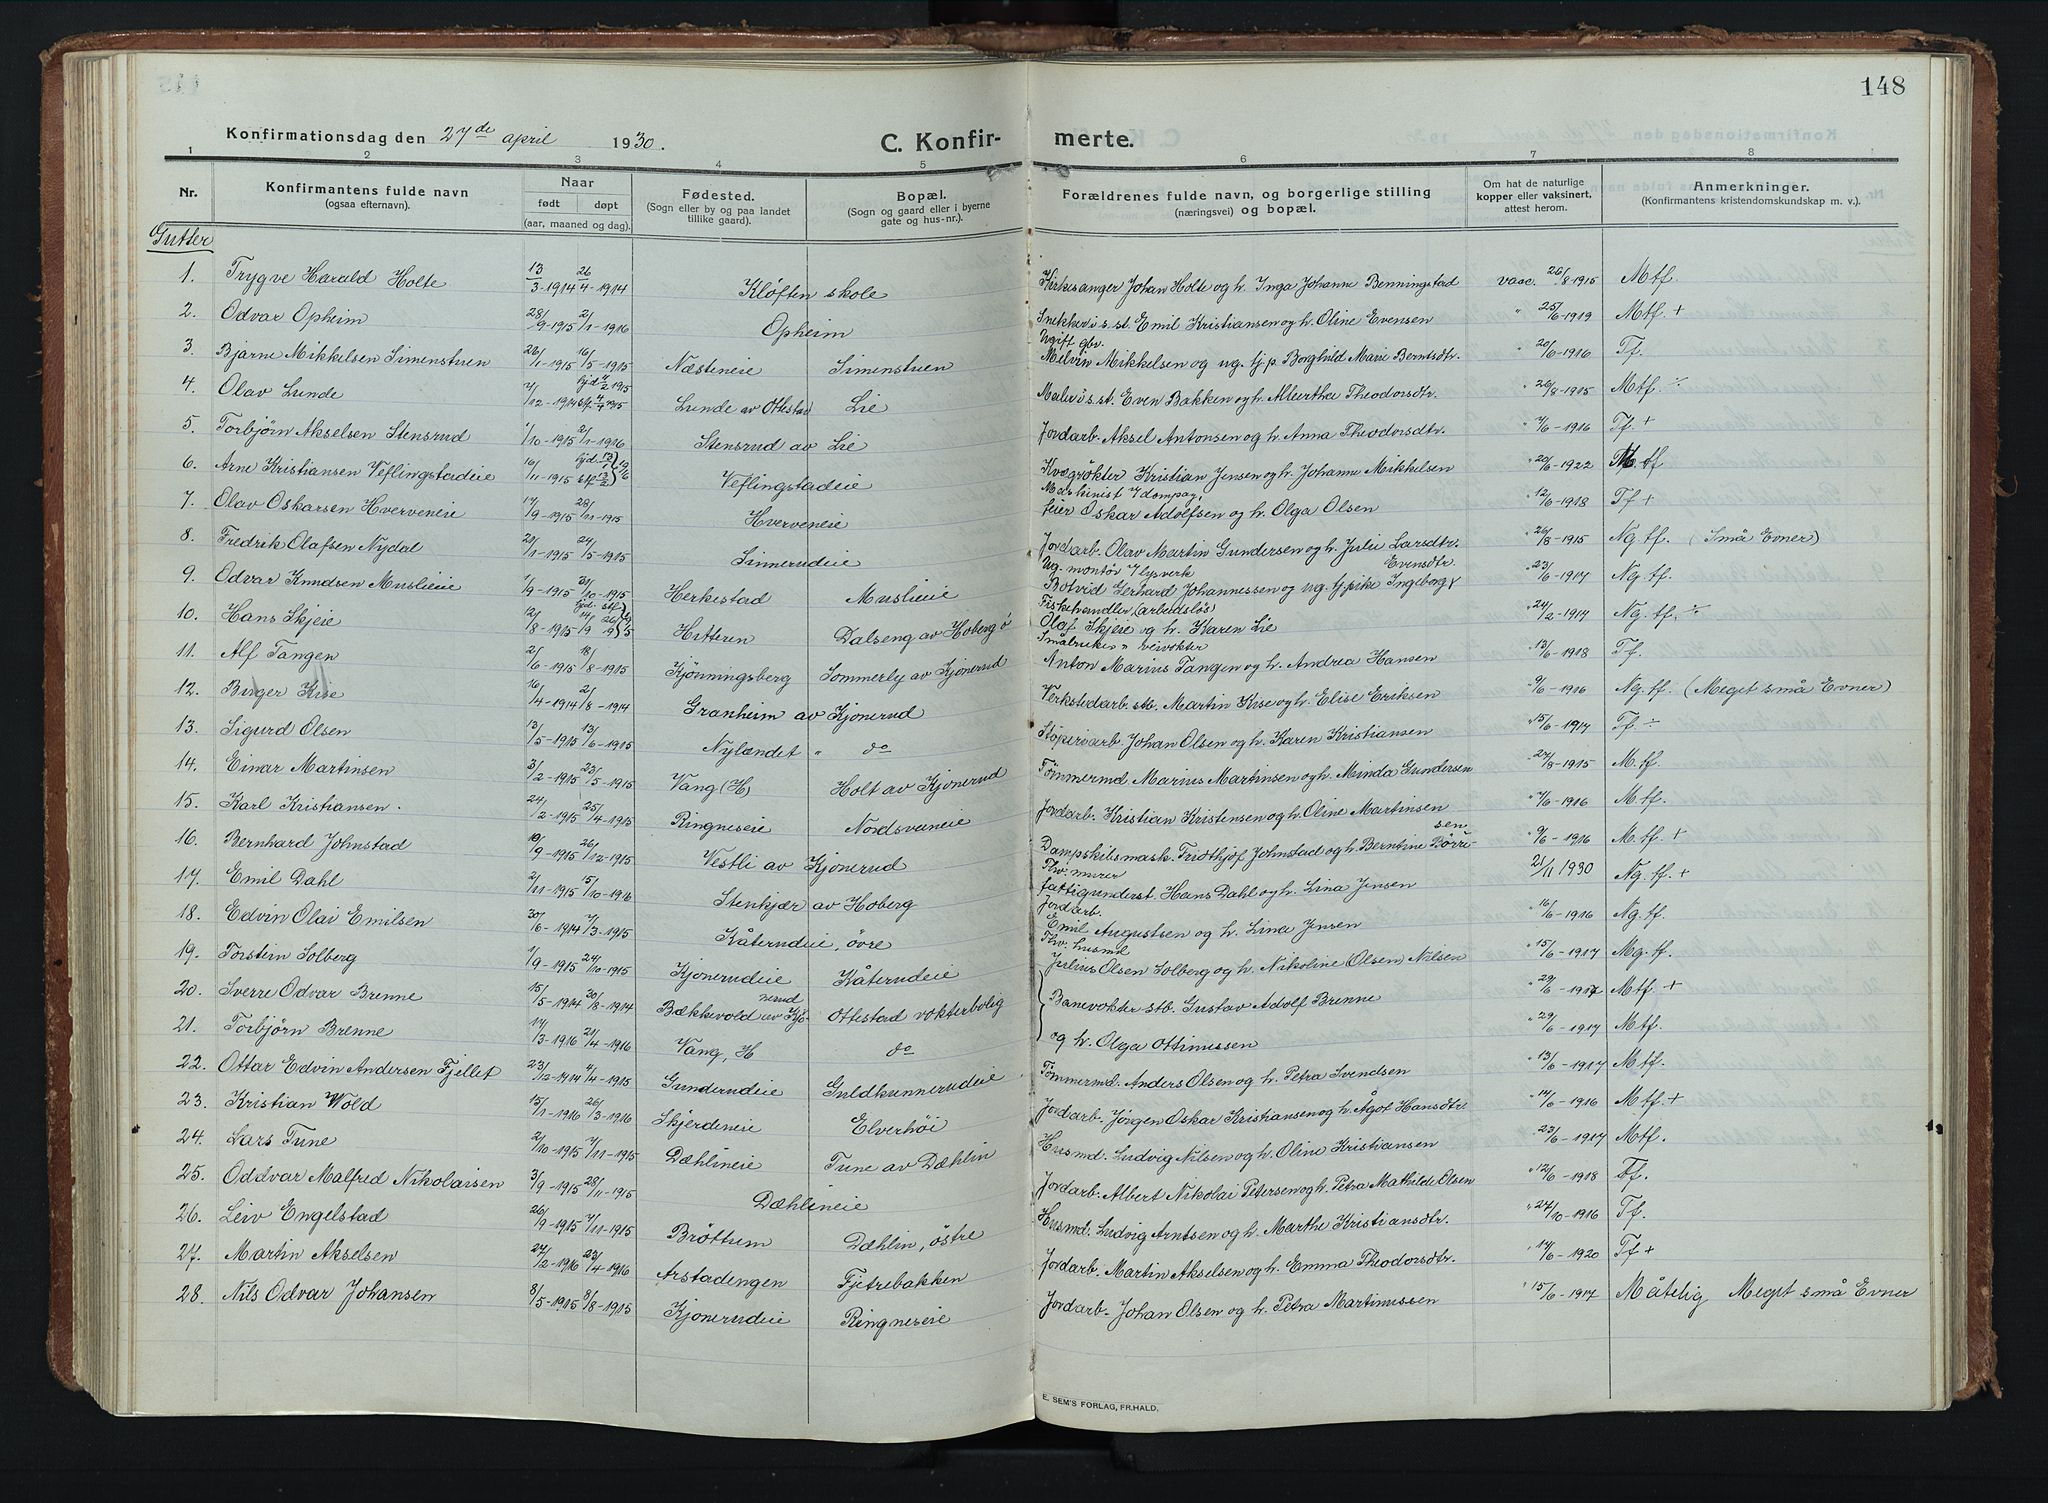 148
Konfirmationsdag den 27de april 1930.
C. Konfirmerte.
1 2 3 4 5 6 7 8
Nr. Konfirmantens fulde navn (ogsaa efternavn). Naar født døpt (aar, maaned og dag). Fødested. (Sogn eller by og paa landet tillike gaard). Bopæl. (Sogn og gaard eller i byerne gate og hus-nr.). Forældrenes fulde navn, og borgerlige stilling (næringsvei) og bopæl. Om hat de naturlige kopper eller vaksinert, attest herom. Anmerkninger. (Konfirmantens kristendomskundskap m. v.).
Gutter
1. Trygve Harald Holte 13/3-1914 26/4-1914 Kløften skole Kirkesanger Johan Holte og h. Inga Johanne Benningstad vacc. 26/8-1915 Mtf.
2. Odvar Opheim 28/9-1915 2/1-1916 Opheim Snekker i s. st. Emil Kristiansen og h. Oline Evensen " 25/6-1919 Mtf. +
3. Bjarne Mikkelsen Simenstuen 26/1-1915 16/5-1915 Næstineie Simenstuen Ugift gbr. Melvin Mikkelsen og ug. tj.p. Borghild Marie Berntsdtr. " 20/6-1916 Tf.
4. Olav Lunde 2/12-1914 hjd. 7/2 1915 stf. 4/4 1915 Lunde av Ottestad Lie Maler i s. st. Even Bakken og h. Albertha Theodorsdtr. " 26/8-1915 Mtf. ÷
5. Torbjørn Akselsen Stensrud 1/10-1915 2/1-1916 Stensrud av Lie Jordarb. Aksel Antonsen og h. Anna Theodorsdtr. " 7/6-1916 Tf. +
6. Arne Kristiansen Veflingstadeie 16/11-1915 hjd. 13/1 stf. 13/2 1916 Veflingstadeie Kvægrøkter Kristian Jensen og h. Johanne Mikkelsen " 20/6-1922 M. tf
7. Olav Oskarsen Hverveneie 17/9-1915 28/11-1915 Hverveneie Maskinist v dampsag, feier Oskar Adolfsen og h. Olga Olsen " 12/6-1918 Tf +
8. Fredrik Olafsen Nydal 20/1-1915 24/5-1915 Sinnerudeie Jordarb. Olav Martin Gundersen og h. Julie Larsdtr. " 26/8-1915 Ng. tf. (Små Evner)
9. Odvar Knudsen Muslieie 1/9-1915 31/10-1915 Herkestad Muslieie Ug. montør v lysverk Botvid Gerhard Johannessen og ug. tj. pike Ingeborg Evensdtr. " 23/6-1917 Ng. tf.
10. Hans Skjeie 12/8-1915 hjd. 14/9 stf. 26/9 15 Hitteren Dalseng av Hoberg ø Fiskehandler (arbeidsløs) Olaf Skjeie og h. Karen Lie " 24/2-1917 Ng. tf. ÷
11. Alf Tangen 2/6-1915 18/8-1915 Kjønningsberg Sommerly av Kjonerud Småbruker, veivokter Anton Marius Tangen og h. Andrea Hansen " 13/6-1918 Tf.
12. Birger Kise 16/4-1914 2/8-1914 Granheim av Kjonerud Verkstedarb. stb. Martin Kise og h. Elise Eriksen " 9/6-1916 Ng. tf. (Meget små Evner)
13. Sigurd Olsen 13/5-1915 13/6-1915 Nylændet " do Støperiarb. Johan Olsen og h. Karen Kristiansen " 15/6-1917 Tf ÷
14. Einar Martinsen 3/2-1915 23/5-1915 Vang (H) Holt av Kjonerud Tømmermd. Marius Martinsen og h. Minda Gundersen " 27/8-1915 M. tf.
15. Karl Kristiansen. 24/2-1915 25/4-1915 Ringneseie Nordsveneie Jordarb. Kristian Kristensen og h. Oline Martinsen " 7/6-1916 M. tf.
16. Bernhard Johnstad 19/9-1915 26/12-1915 Vestli av Kjonerud Dampskibsmask. Fridthjof Johnstad og h. Berntine Børresen " 9/6-1916 M. tf. +
17. Emil Dahl 2/11-1915 15/10-1916 Stenkjær av Hoberg Fhv. murer fattigunderst. Hans Dahl og h. Lina Jensen 21/11 1930 Ng. tf. +
18. Edvin Olai Emilsen 30/6-1914 7/3-1915 Kåterudeie, øvre Jordarb. Emil Augustsen og h. Lina Jensen " 16/6-1916 Ng. tf.
19. Torstein Solberg 1/9-1915 24/10-1915 Kjonerudeie Kåterudeie Fhv. husmd Julius Olsen Solberg og h. Nikoline (Olsen) Nilsen " 15/6-1917 Mg. tf.
20. Sverre Odvar Brenne 15/5-1914 30/8-1914 Bækkevold av Kjonerud Ottestad vokterbolig Banevokter stb. Gustav Adolf Brenne " 29/6-1917 Mtf. +
21. Torbjørn Brenne 17/3-1916 21/4-1916 Vang, H do og h. Olga Ottinussen " 29/6-1917 Mtf.
22. Ottar Edvin Andersen Fjellet 23/12-1914 4/4-1915 Gunderudeie Guldkunnerudeie Tømmermd. Anders Olsen og h. Petra Svendsen " 13/6-1917 Mtf.
23. Kristian Wold 15/1-1916 26/3-1916 Skjerdeneie Elverhøi Jordarb. Jørgen Oskar Kristiansen og h. Ågot Hansdtr. " 14/6-1916 Mtf. +
24. Lars Tune 2/10-1915 7/11-1915 Dæhlineie Tune av Dæhlin Husmd. Ludvig Nilsen og h. Oline Kristiansen " 23/6-1917 Mtf.
25. Oddvar Malfred Nikolaisen 3/9-1915 28/11-1915 Dæhlineie Jordarb. Albert Nikolai Petersen og h. Petra Mathilde Olsen " 12/6-1918 Tf.
26. Leiv Engelstad 26/9-1915 7/11-1915 Brøttum Dæhlin, østre Husmd. Ludvig Arntsen og h. Marthe Kristiansdtr. " 27/10-1916 Tf.
27. Martin Akselsen 27/2-1916 23/4-1916 Arstadengen Fjetrebakken Jordarb. Martin Akselsen og h. Emma Theodorsdtr. " 14/6-1920 Tf +
28. Nils Odvar Johansen 8/5-1915 8/8-1915 Kjonerudeie Ringneseie Jordarb. Johan Olsen og h. Petra Martinussen " 15/6-1917 Måtelig Meget små Evner
E. SEM'S FORLAG, FR.HALD.